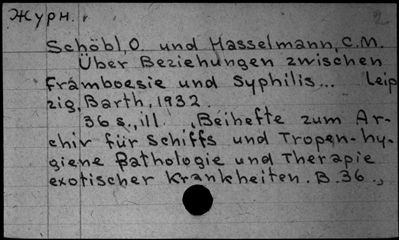 Журн.
Schöbl, O. und Hasselmann, C.M.
Über Beziehungen zwischen
Framboesie und Syphilis... Leip
zig, Barth, 1932.
36 s., ill. (Beihefte zum Ar-
chiv für Schiffs und Tropen-hy-
giene Pathologie und Therapie
exotischer Krankheiten. B. 36.,